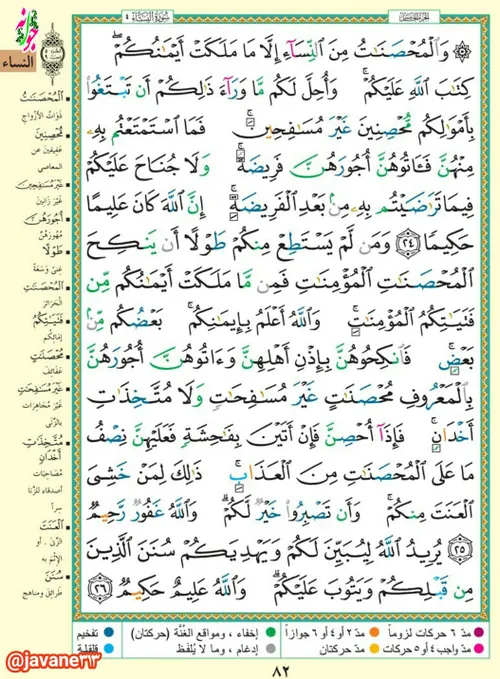 الجزء الخامس
سُورَةُ النِّسَاءِ ٤
جوانه
النساء
۞ وَٱلْمُحْصَنَٰتُ مِنَ ٱلنِّسَآءِ إِلَّا مَا مَلَكَتْ أَيْمَٰنُكُمْ ۖ
كِتَٰبَ ٱللَّهِ عَلَيْكُمْ ۚ وَأُحِلَّ لَكُم مَّا وَرَآءَ ذَٰلِكُمْ أَن تَبْتَغُوا۟
بِأَمْوَٰلِكُم مُّحْصِنِينَ غَيْرَ مُسَٰفِحِينَ ۚ فَمَا ٱسْتَمْتَعْتُم بِهِۦ
مِنْهُنَّ فَـَٔاتُوهُنَّ أُجُورَهُنَّ فَرِيضَةً ۚ وَلَا جُنَاحَ عَلَيْكُمْ
فِيمَا تَرَٰضَيْتُم بِهِۦ مِنۢ بَعْدِ ٱلْفَرِيضَةِ ۚ إِنَّ ٱللَّهَ كَانَ عَلِيمًا
حَكِيمًا ٢٤ وَمَن لَّمْ يَسْتَطِعْ مِنكُمْ طَوْلًا أَن يَنكِحَ
ٱلْمُحْصَنَٰتِ ٱلْمُؤْمِنَٰتِ فَمِن مَّا مَلَكَتْ أَيْمَٰنُكُم مِّن
فَتَيَٰتِكُمُ ٱلْمُؤْمِنَٰتِ ۚ وَٱللَّهُ أَعْلَمُ بِإِيمَٰنِكُم ۚ بَعْضُكُم مِّنۢ
بَعْضٍ ۚ فَٱنكِحُوهُنَّ بِإِذْنِ أَهْلِهِنَّ وَءَاتُوهُنَّ أُجُورَهُنَّ
بِٱلْمَعْرُوفِ مُحْصَنَٰتٍ غَيْرَ مُسَٰفِحَٰتٍ وَلَا مُتَّخِذَٰتِ
أَخْدَانٍ ۚ فَإِذَآ أُحْصِنَّ فَإِنْ أَتَيْنَ بِفَٰحِشَةٍ فَعَلَيْهِنَّ نِصْفُ
مَا عَلَى ٱلْمُحْصَنَٰتِ مِنَ ٱلْعَذَابِ ۚ ذَٰلِكَ لِمَنْ خَشِىَ
ٱلْعَنَتَ مِنكُمْ ۚ وَأَن تَصْبِرُوا۟ خَيْرٌ لَّكُمْ ۗ وَٱللَّهُ غَفُورٌ رَّحِيمٌ
٢٥ يُرِيدُ ٱللَّهُ لِيُبَيِّنَ لَكُمْ وَيَهْدِيَكُمْ سُنَنَ ٱلَّذِينَ
مِن قَبْلِكُمْ وَيَتُوبَ عَلَيْكُمْ ۗ وَٱللَّهُ عَلِيمٌ حَكِيمٌ ٢٦
■ ٱلْمُحْصَنَٰتُ
ذَوَاتُ الأَزْوَاجِ
■ مُحْصِنِينَ
عَفِيفِينَ عن
المعاصي
■ غَيْرَ مُسَٰفِحِينَ
غَيْرَ زَانِينَ
■ أُجُورَهُنَّ
مُهُورَهُنَّ
■ طَوْلًا
غِنًى وَسَعَةً
■ ٱلْمُحْصَنَٰتِ
الحَرَائِرَ
■ فَتَيَٰتِكُمُ
إِمَائِكُمْ
■ مُحْصَنَٰتٍ
عَفَائِفَ
■ غَيْرَ مُسَٰفِحَٰتٍ
غَيْرَ مُجَاهِرَاتٍ
بالزِّنَى
■ مُتَّخِذَٰتِ أَخْدَانٍ
مُصَاحِبَات
أصدقاء للزنا
سِراً
■ ٱلْعَنَتَ
الزِّنَى . أو
الإثم به
■ سُنَنَ
طَرَائِقَ ومناهج
مدّ ٦ حركات لزوماً
مدّ ٢ أو ٤ أو ٦ جوازاً
إخفاء ، ومواقع الغُنَّة (حركتان)
تفخيم
مدّ واجب ٤ أو ٥ حركات
مدّ حركتان
إدغام ، وما لا يُلفَظ
قلقلة
٨٢
@javane٣٣